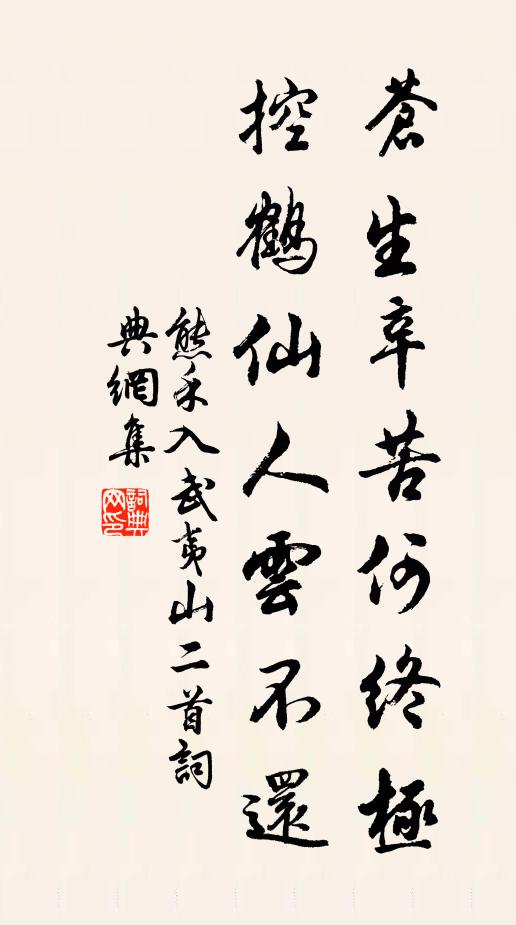 蒼生辛苦何終極
控鶴仙人雲不還
熊禾入武夷山二首詞
典網集
詞典网印